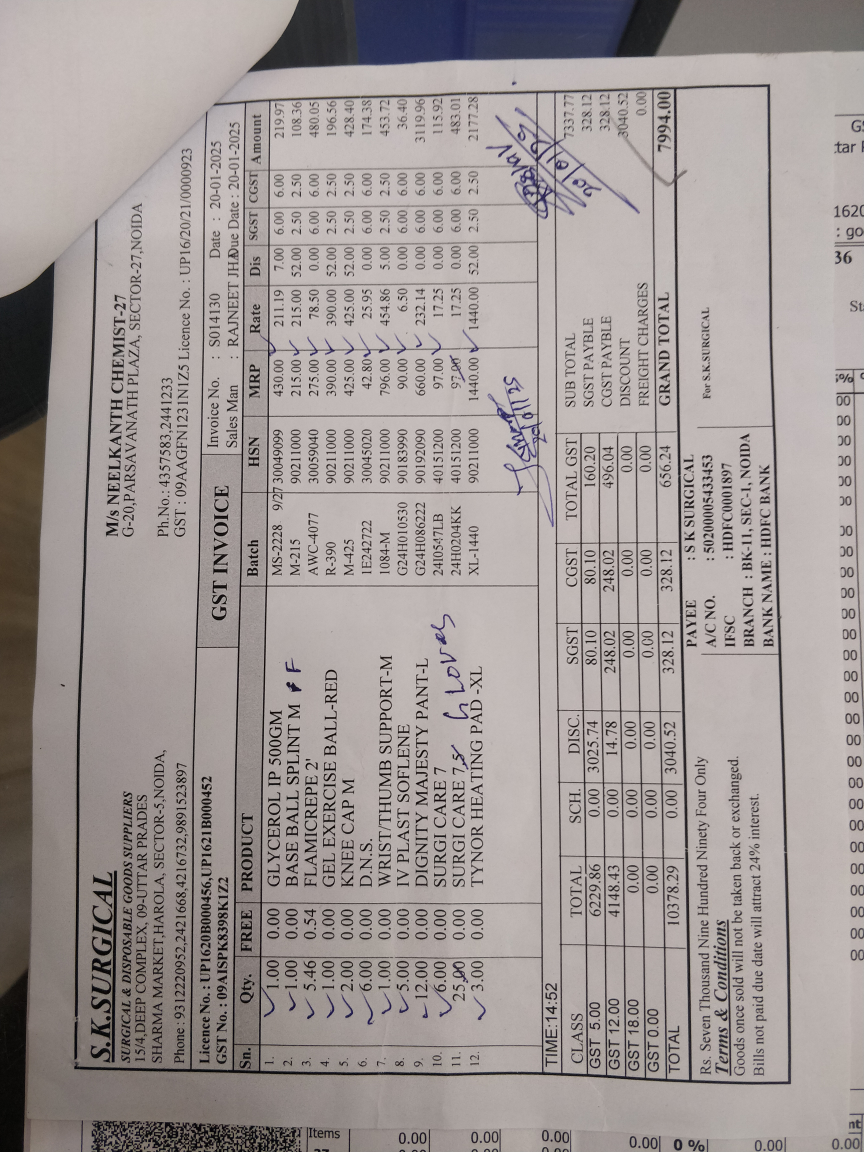 S.K.SURGICAL
SURGICAL & DISPOSABLE GOODS SUPPLIERS
15/4,DEEP COMPLEX, 09-UTTAR PRADES
SHARMA MARKET,HAROLA, SECTOR-5,NOIDA,
Phone : 9312220952,2421668,4216732,9891523897
M/s NEELKANTH CHEMIST-27
G-20,PARSAVANATH PLAZA, SECTOR-27,NOIDA
Ph.No.: 4357583,2441233
GST : 09AAGFN1231N1Z5 Licence No. : UP16/20/21/0000923
Licence No. : UP1620B000456,UP1621B000452
GST No. : 09AISPK8398K1Z2
GST INVOICE
Invoice No. : S014130 Date : 20-01-2025
Sales Man : RAJNEET JHA Due Date : 20-01-2025
Sn. Qty. FREE PRODUCT Batch HSN MRP Rate Dis SGST CGST Amount
1. 1.00 0.00 GLYCEROL IP 500GM MS-2228 9/27 30049099 430.00 211.19 7.00 6.00 6.00 219.97
2. 1.00 0.00 BASE BALL SPLINT M F M-215 90211000 215.00 215.00 52.00 2.50 2.50 108.36
3. 5.46 0.54 FLAMICREPE 2' AWC-4077 30059040 275.00 78.50 0.00 6.00 6.00 480.05
4. 1.00 0.00 GEL EXERCISE BALL-RED R-390 90211000 390.00 390.00 52.00 2.50 2.50 196.56
5. 2.00 0.00 KNEE CAP M M-425 90211000 425.00 425.00 52.00 2.50 2.50 428.40
6. 6.00 0.00 D.N.S. 1E242722 30045020 42.80 25.95 0.00 6.00 6.00 174.38
7. 1.00 0.00 WRIST/THUMB SUPPORT-M 1084-M 90211000 796.00 454.86 5.00 2.50 2.50 453.72
8. 5.00 0.00 IV PLAST SOFLENE G24H010530 90183990 90.00 6.50 0.00 6.00 6.00 36.40
9. 12.00 0.00 DIGNITY MAJESTY PANT-L G24H086222 90192090 660.00 232.14 0.00 6.00 6.00 3119.96
10. 6.00 0.00 SURGI CARE 7 24I0547LB 40151200 97.00 17.25 0.00 6.00 6.00 115.92
11. 25.00 0.00 SURGI CARE 7.5 Gloves 24H0204KK 40151200 97.00 17.25 0.00 6.00 6.00 483.01
12. 3.00 0.00 TYNOR HEATING PAD -XL XL-1440 90211000 1440.00 1440.00 52.00 2.50 2.50 2177.28
20/01/25
TIME:14:52
CLASS TOTAL SCH. DISC. SGST CGST TOTAL GST
GST 5.00 6229.86 0.00 3025.74 80.10 80.10 160.20
GST 12.00 4148.43 0.00 14.78 248.02 248.02 496.04
GST 18.00 0.00 0.00 0.00 0.00 0.00 0.00
GST 0.00 0.00 0.00 0.00 0.00 0.00 0.00
TOTAL 10378.29 0.00 3040.52 328.12 328.12 656.24
SUB TOTAL 7337.77
SGST PAYBLE 328.12
CGST PAYBLE 328.12
DISCOUNT 3040.52
FREIGHT CHARGES 0.00
GRAND TOTAL 7994.00
Rs. Seven Thousand Nine Hundred Ninety Four Only
Terms & Conditions
Goods once sold will not be taken back or exchanged.
Bills not paid due date will attract 24% interest.
PAYEE : S K SURGICAL
A/C NO. : 50200005433453
IFSC : HDFC0001897
BRANCH : BK-11, SEC-1, NOIDA
BANK NAME : HDFC BANK
For S.K.SURGICAL
Items
0.00 0.00 0.00 0.00 0 % 0.00 0.00